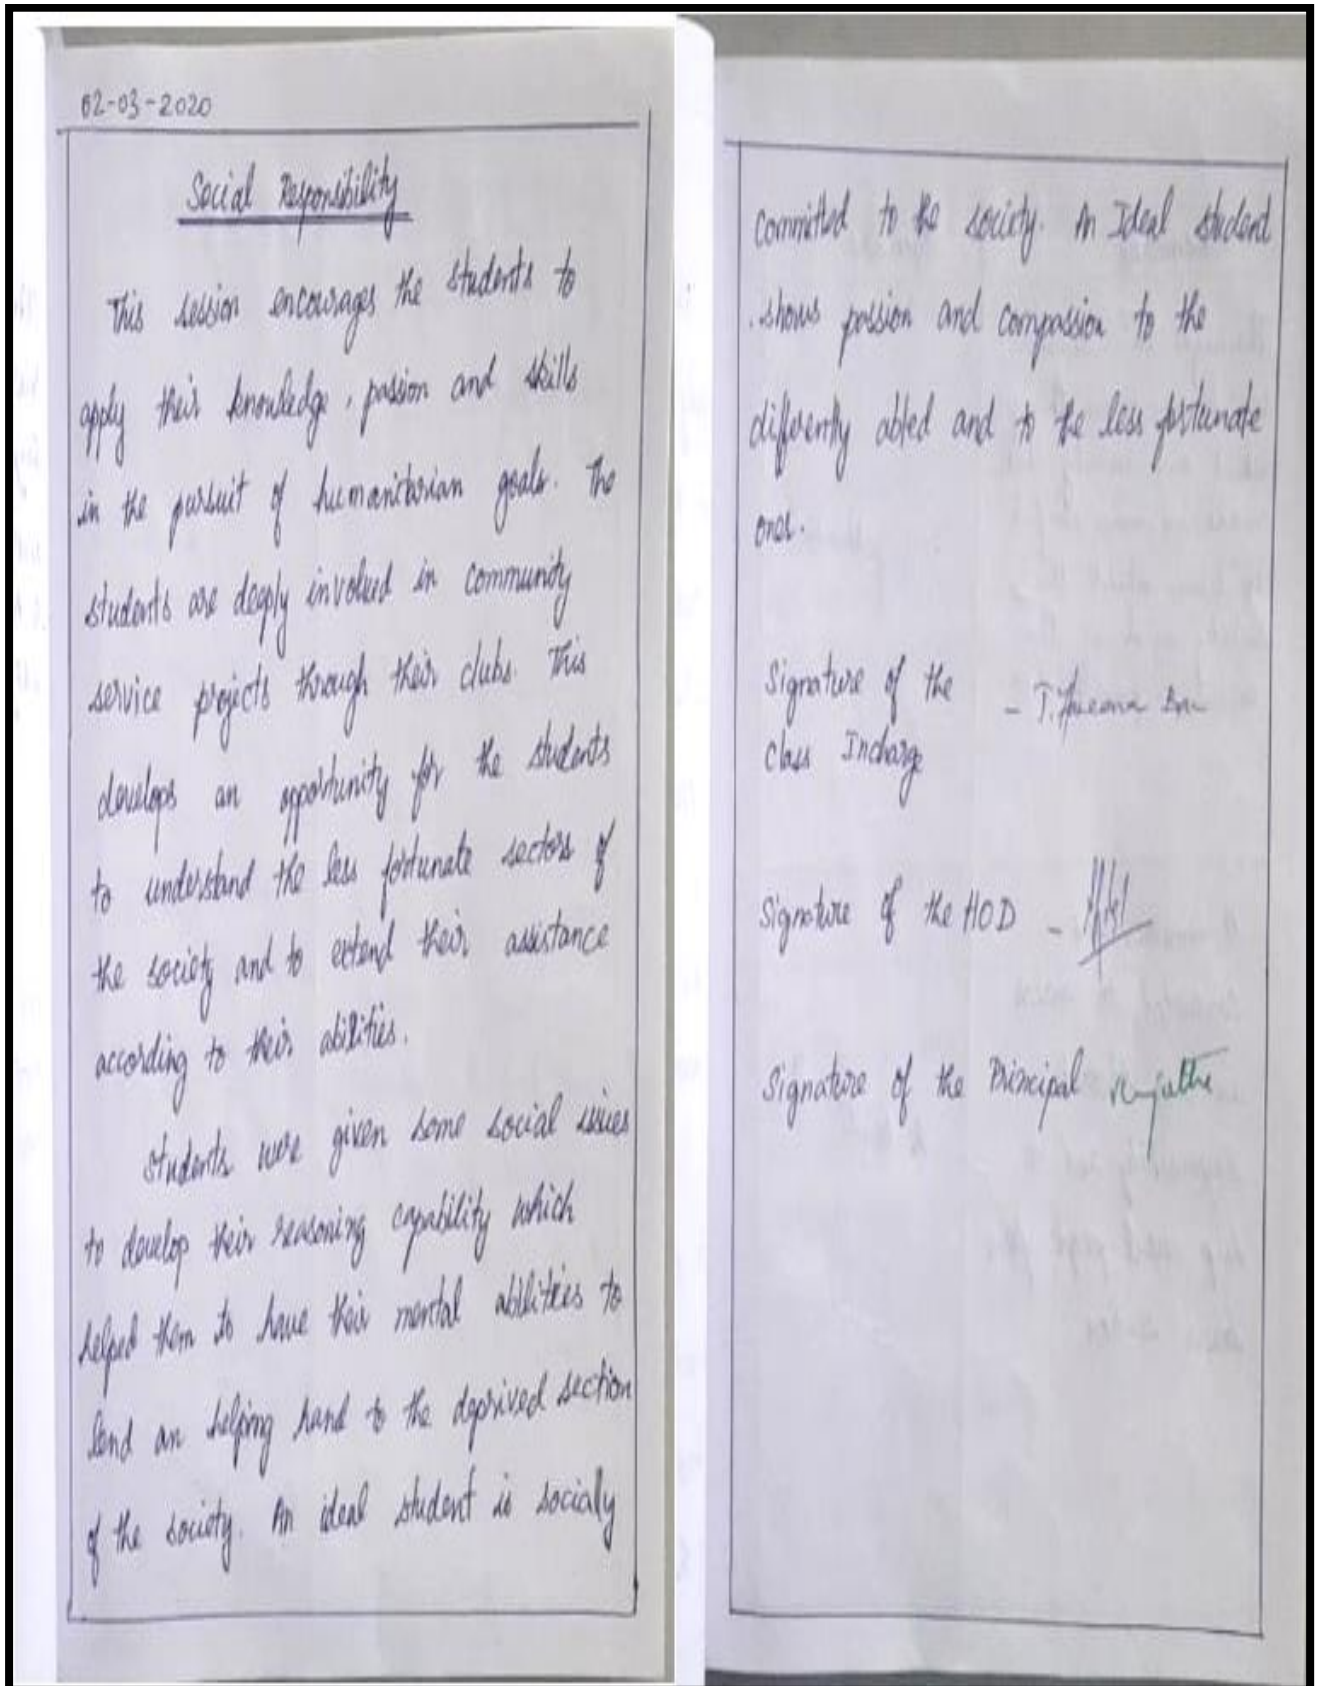 02-03-2020
Social Responsibility
This session encourages the students to
apply their knowledge, passion and skills
in the pursuit of humanitarian goals. The
students are deeply involved in community
service projects through their clubs. This
develops an opportunity for the students
to understand the less fortunate sectors of
the society and to extend their assistance
according to their abilities.
Students were given some social issues
to develop their reasoning capability which
helped them to have their mental abilities to
lend an helping hand to the deprived section
of the society. An ideal student is socially
committed to the society. An Ideal student
shows passion and compassion to the
differently abled and to the less fortunate
ones.
Signature of the
Class Incharge
- T.
Signature of the HOD -
Signature of the Principal